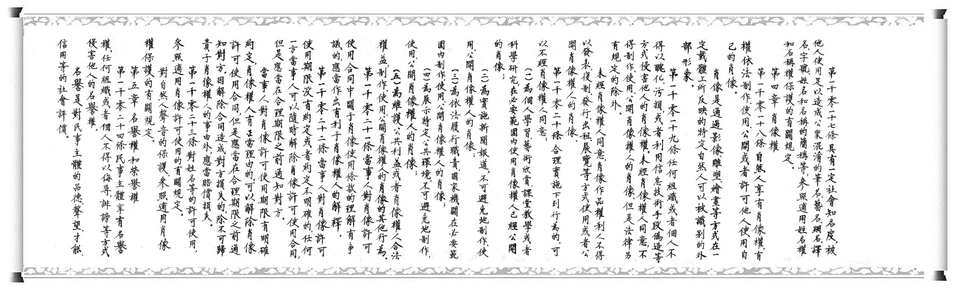 第一千零一十七條 具有一定社會知名度,被
他人使用足以造成公衆混淆的筆名、藝名、網名、譯
名、字號、姓名和名稱的簡稱等,參照適用姓名權
和名稱權保護的有關規定。
第四章 肖像權
第一千零一十八條 自然人享有肖像權,有
權依法製作、使用、公開或者許可他人使用自
己的肖像。
肖像是通過影像、雕塑、繪畫等方式在一
定載體上所反映的特定自然人可以被識別的外
部形象。
第一千零一十九條 任何組織或者個人不
得以醜化、污損,或者利用信息技術手段偽造等
方式侵害他人的肖像權。未經肖像權人同意,不
得製作、使用、公開肖像權人的肖像,但是法律另
有規定的除外。
未經肖像權人同意,肖像作品權利人不得
以發表、複製、發行、出租、展覽等方式使用或者公
開肖像權人的肖像。
第一千零二十條 合理實施下列行為的,可
以不經肖像權人同意:
(一)為個人學習、藝術欣賞、課堂教學或者
科學研究,在必要範圍內使用肖像權人已經公開
的肖像;
(二)為實施新聞報道,不可避免地製作、使
用、公開肖像權人的肖像;
(三)為依法履行職責,國家機關在必要範
圍內製作、使用、公開肖像權人的肖像;
(四)為展示特定公共環境,不可避免地製作、
使用、公開肖像權人的肖像;
(五)為維護公共利益或者肖像權人合法
權益,製作、使用、公開肖像權人的肖像的其他行為。
第一千零二十一條 當事人對肖像許可
使用合同中關於肖像使用條款的理解有爭
議的,應當作出有利於肖像權人的解釋。
第一千零二十二條 當事人對肖像許可
使用期限沒有約定或者約定不明確的,任何
一方當事人可以隨時解除肖像許可使用合同,
但是應當在合理期限之前通知對方。
當事人對肖像許可使用期限有明確
約定,肖像權人有正當理由的,可以解除肖像
許可使用合同,但是應當在合理期限之前通
知對方。因解除合同造成對方損失的,除不可歸
責於肖像權人的事由外,應當賠償損失。
第一千零二十三條 對姓名等的許可使用,
參照適用肖像許可使用的有關規定。
對自然人聲音的保護,參照適用肖像
權保護的有關規定。
第五章 名譽權和榮譽權
第一千零二十四條 民事主體享有名譽
權。任何組織或者個人不得以侮辱、誹謗等方式
侵害他人的名譽權。
名譽是對民事主體的品德、聲望、才能、
信用等的社會評價。